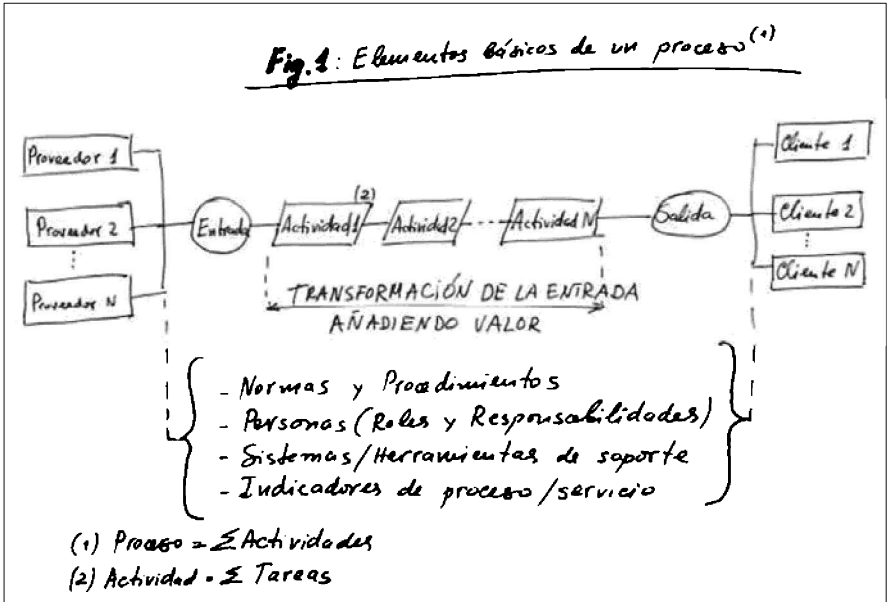 Fig. 1: Elementos básicos de un proceso (1)
Proveedor 1
Proveedor 2
⋮
Proveedor N
Entrada
Actividad1 (2)
Actividad2
....
Actividad N
Salida
Cliente 1
Cliente 2
⋮
Cliente N
TRANSFORMACIÓN DE LA ENTRADA
AÑADIENDO VALOR
- Normas y Procedimientos
- Personas (Roles y Responsabilidades)
- Sistemas/Herramientas de soporte
- Indicadores de proceso/servicio
(1) Proceso = Σ Actividades
(2) Actividad = Σ Tareas